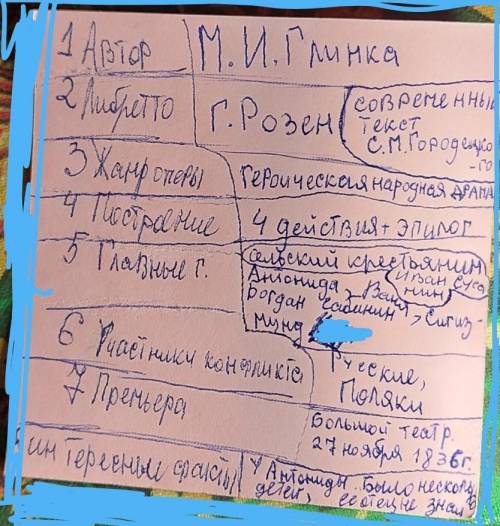 1 Автор М. И. Глинка
2 Либретто Г. Розен
современный
текст
С. М. Городецко
-го
3 Жанр оперы Героическая народная драма
4 Построение 4 действия + эпилог
5 Главные г. сельский крестьянин
Иван Суса
нин
Антонида, Ваня
Богдан Сабинин, Сигиз
мунд
6 Участники конфликта Русские,
Поляки
7 Премьера Большой театр.
27 ноября 1836г.
интересные факты У Антониды было несколь
детей, её отец не знал